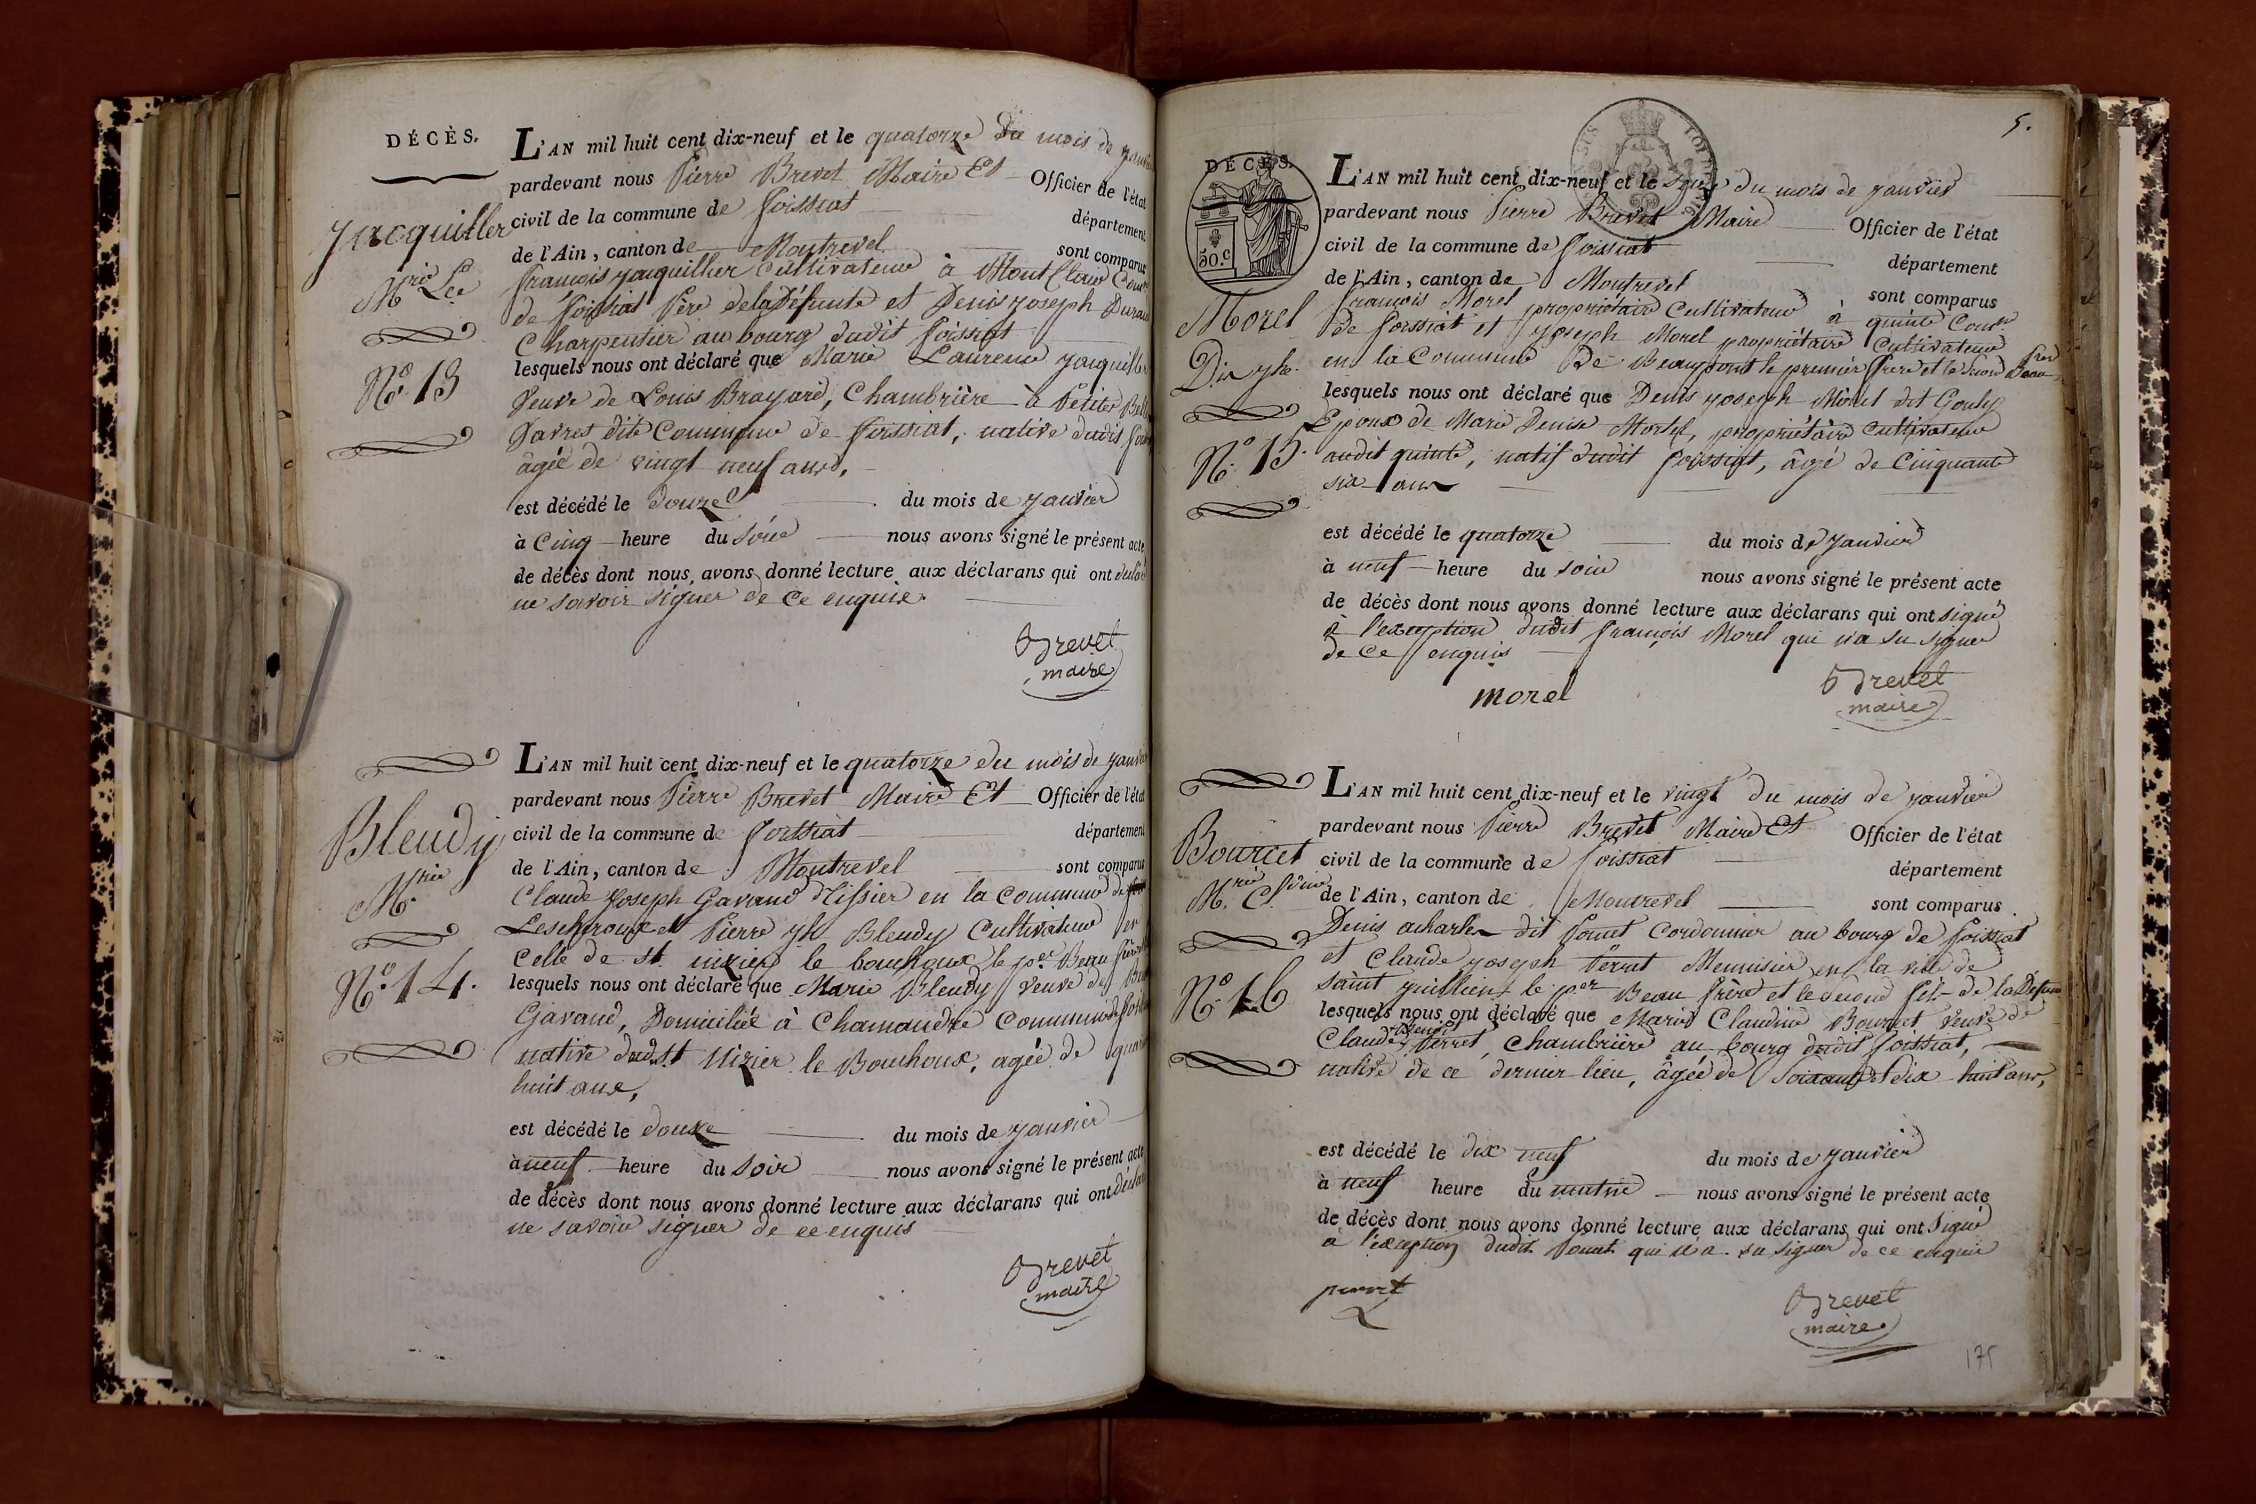 DÉCÈS.
L'AN mil huit cent dix-neuf et le quatorze du mois de
pardevant nous Pierre Brevet Maire Et Officier de l'état
civil de la commune de foissiat département
Jacquiller
de l'Ain, canton de Montrevel sont comparus
françois jacquillier Cultivateur à MontClair
Mrie Lce
de foissiat Père de la Défunte et Denis joseph
Charpentier au bourg dudit foissiat
No. 13
lesquels nous ont déclaré que Marie Laurence
Veuve de Louis Brayard, Chambrière à
dite Commune de foissiat, native dudit
âgée de vingt neuf ans,
est décédé le douze du mois de janvier
à Cinq heure du soir nous avons signé le présent acte
de décès dont nous avons donné lecture aux déclarans qui ont
ne savoir signer de Ce enquis.
Brevet
maire
L'AN mil huit cent dix-neuf et le quatorze du mois de
pardevant nous Pierre Brevet Maire Et Officier de l'état
Bleudy
civil de la commune de foissiat département
Mrie
de l'Ain, canton de Montrevel sont comparus
Claude Joseph Gavand Tissier en la Commune de
Lescheroux et Pierre jh Bleudy Cultivateur en
Celle de st. nizier le bouchoux le per. Beau
No. 14.
lesquels nous ont déclaré que Marie Bleudy veuve de
Gavand, Domiciliée à Chamandré Commune de
native dud. st Nizier le Bouchoux, agée de
huit ans,
est décédé le douze du mois de janvier
à neuf heure du soir nous avons signé le présent acte
de décès dont nous avons donné lecture aux déclarans qui ont
ne savoir signer de ce enquis
Brevet
maire
5.
DÉCÈS.
50.c
L'AN mil huit cent dix-neuf et le du mois de janvier
pardevant nous Pierre Brevet Maire Officier de l'état
civil de la commune de foissiat département
de l'Ain, canton de Montrevel sont comparus
Morel
françois Morel propriétaire Cultivateur à quinte
de foissiat et joseph Morel propriétaire Cultivateur
en la Commune De Beaupont le premier frère et le second Beau
Dis jh.
lesquels nous ont déclaré que Denis joseph Morel dit Gouly
Epoux de Marie Denise Morel, propriétaire Cultivateur
No. 15.
audit quinte, natif dudit foissiat, âgé de Cinquante
six ans
est décédé le quatorze du mois de janvier
à neuf heure du soir nous avons signé le présent acte
de décès dont nous avons donné lecture aux déclarans qui ont signé
à l'exception dudit françois Morel qui n'a su signer
de Ce enquis
morel
Brevet
maire
L'AN mil huit cent dix-neuf et le vingt du mois de janvier
pardevant nous Pierre Brevet Maire Et Officier de l'état
Bourcet
civil de la commune de foissiat département
de l'Ain, canton de Montrevel sont comparus
Denis dit Cordonnier au bourg de foissiat
et Claude joseph Perret Menuisier en la ville de
No. 16
saint le per Beau frère et le second fils de la
lesquels nous ont déclaré que Marie Claudine Bourcet veuve de
Claude Perret, Chambrière au bourg dudit foissiat,
native de ce dernier lieu, âgée de soixante dix huit ans,
est décédé le dix neuf du mois de janvier
à neuf heure du matin nous avons signé le présent acte
de décès dont nous avons donné lecture aux déclarans qui ont signé
à l'exception dudit qui n'a su signer de ce enquis
perret
Brevet
maire
175